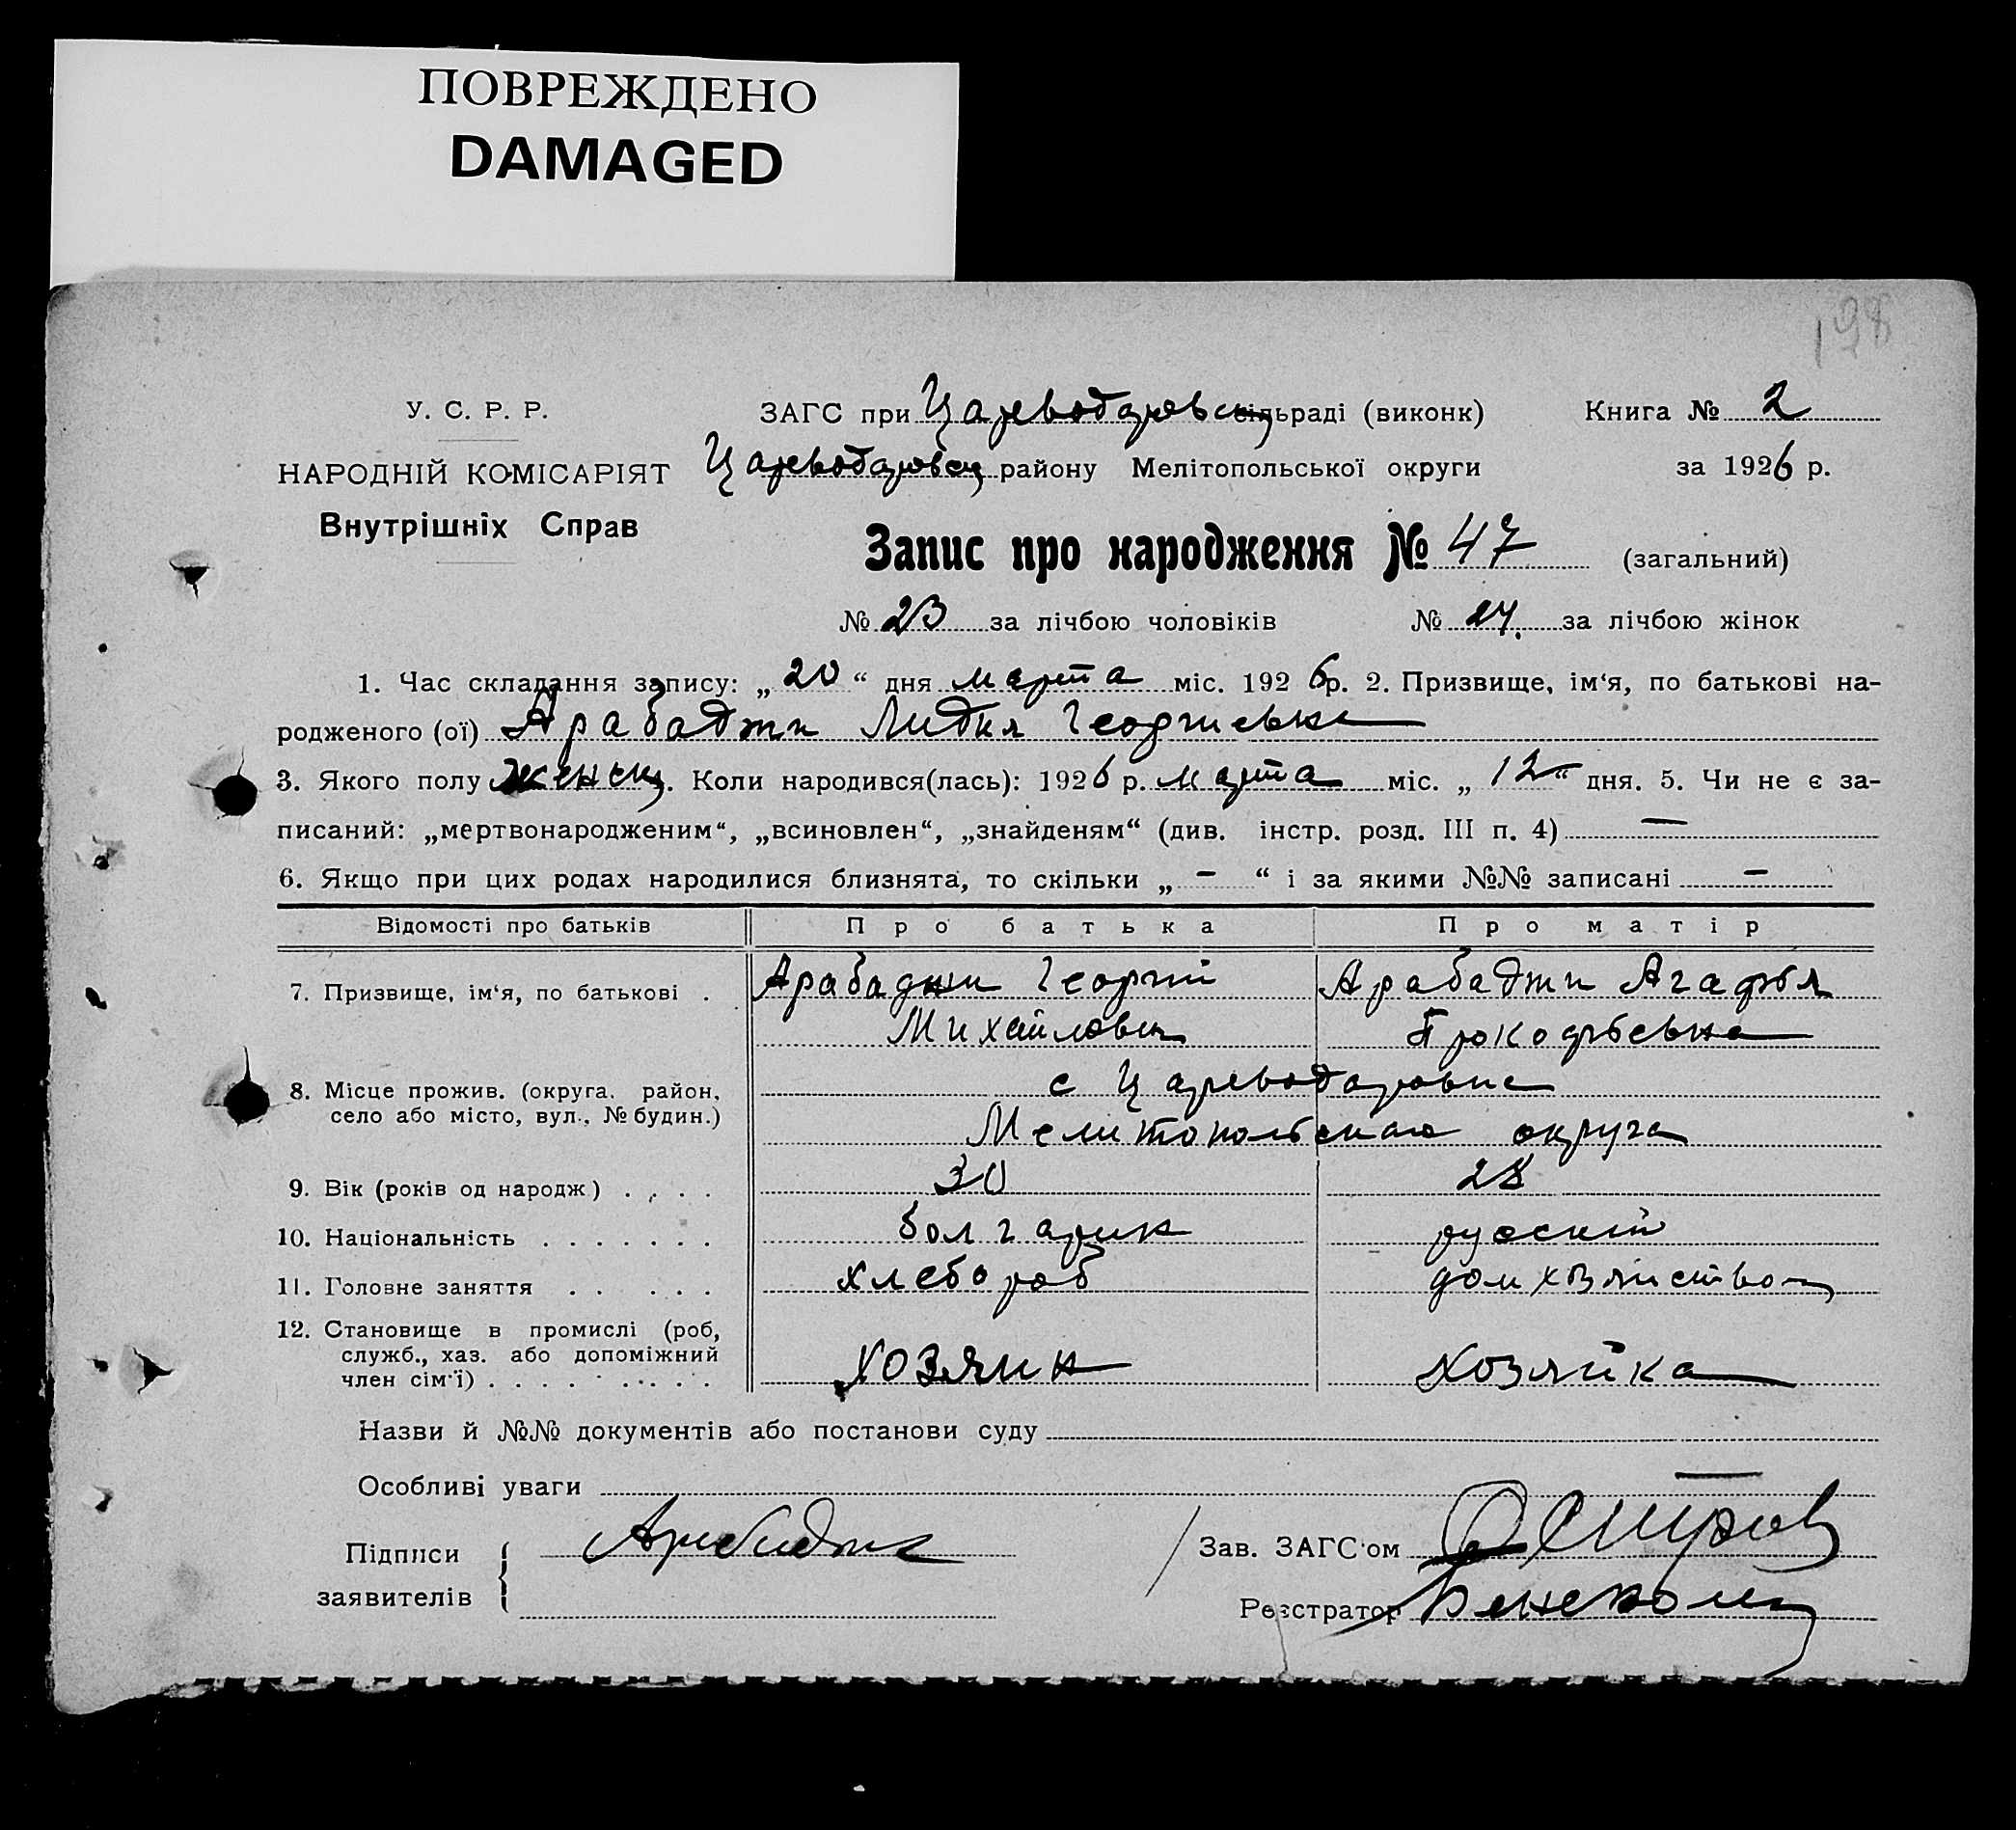 ПОВРЕЖДЕНО
DAMAGED
198
У. С. Р. Р.
НАРОДНІЙ КОМІСАРІЯТ
Внутрішніх Справ
ЗАГС при Цареводаровск сільраді (виконк) Книга № 2
Цареводаровск району Мелітопольської округи за 1926 р.
Запис про народження № 47 (загальний)
№ 23 за лічбою чоловіків № 24. за лічбою жінок
1. Час складання запису: „20“ дня марта міс. 1926 р. 2. Призвище, ім‘я, по батькові на-
родженого (ої) Арабаджи Лидия Георгиевна
3. Якого полу женск. Коли народився(лась): 1926 р. марта міс. „12“ дня. 5. Чи не є за-
писаний: „мертвонародженим“, „всиновлен“, „знайденям“ (див. інстр. розд. III п. 4) —
6. Якщо при цих родах народилися близнята, то скільки „ – “ і за якими №№ записані –
Відомості про батьків Про батька Про матір
7. Призвище, ім‘я, по батькові . Арабаджи Георгий Арабаджи Агафья
Михайлович Прокофьевна
8. Місце прожив. (округа, район, с Цареводаровка
село або місто, вул., № будин.) Мелитопольская округа
9. Вік (років од народж) . . . . 30 28
10. Національність . . . . . . . болгарин русский
11. Головне заняття . . . . . . хлебороб домхозяйством
12. Становище в промислі (роб,
служб., хаз. або допоміжний
член сім‘ї) . . . . . . . . . . хозяин хозяйка
Назви й №№ документів або постанови суду
Особливі уваги —
Підписи заявителів { Арабаджи
Зав. ЗАГС‘ом Остров
Реєстратор